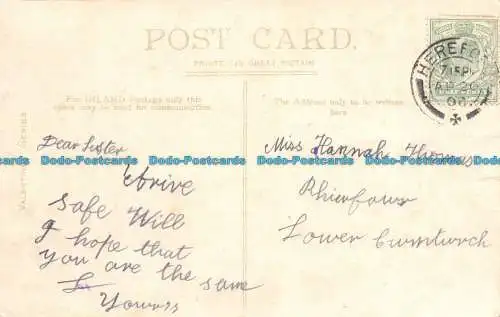 POST CARD.
PRINTED IN GREAT BRITAIN
For INLAND Postage only this
space may be used for communication.
The Address only to be written
here
VALENTINES SERIES
HEREFORD
7.15 PM
Dear Sister
safe Will
I hope that
you are the same
Miss Hannah Thomas
Lower Cwmtwrch
Dodo-Postcards Dodo-Postcards Dodo-Postcards Dodo-Postcards